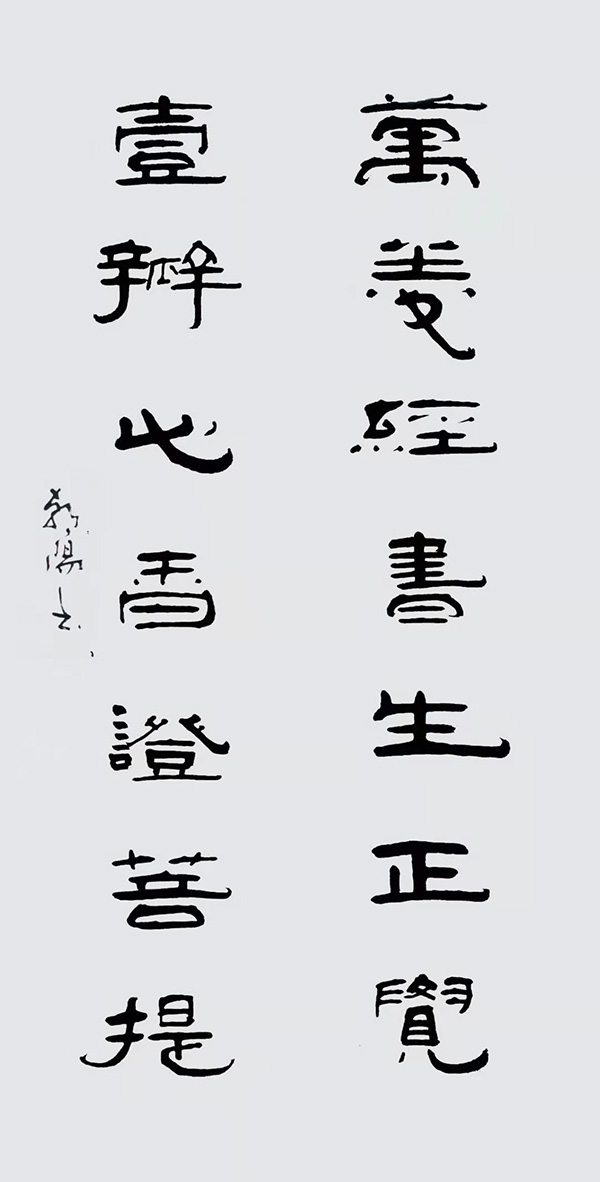 萬卷經書生正覺
壹瓣心香證菩提